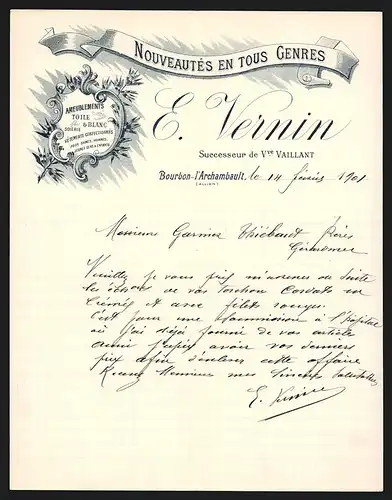 NOUVEAUTÉS EN TOUS GENRES
AMEUBLEMENTS
TOILE
& BLANC
SOIERIE
VÊTEMENTS CONFECTIONNÉS
POUR DAMES, HOMMES,
JEUNES GENS & ENFANTS
E. Vernin
Successeur de Vve VAILLANT
Bourbon-l'Archambault, le 14 février 1901
(ALLIER)
Messieurs Garnier Thiébaut Frères
Gérardmer
Veuillez je vous prie m'adresser de suite
les échons de vos torchon
et avec filets rouges.
C'est pour une soumission à l'hôpital
où j'ai déjà fourni de vos articles
aussi avoir vos derniers
prix afin d'enlever cette affaire
Recevez Messieurs mes sincères salutations
E. Vernin